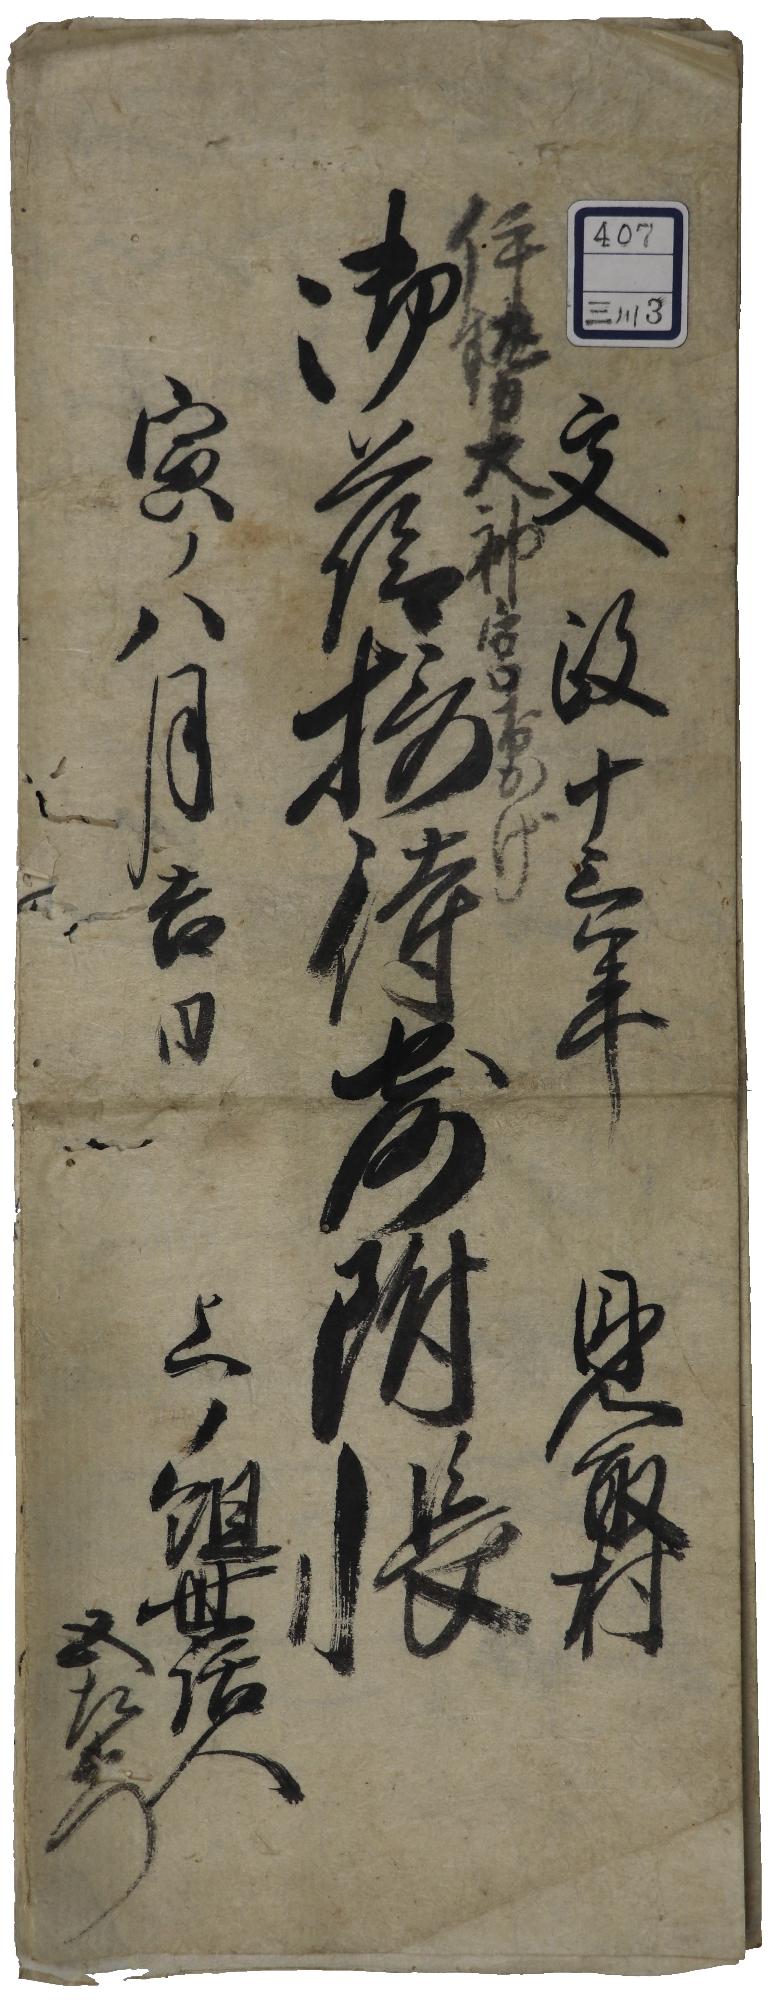 407
三川3
文政十三年 見取村
伊勢大神宮おかげ
御蔭接待寄附帳
寅ノ八月吉日
上ノ組世話人